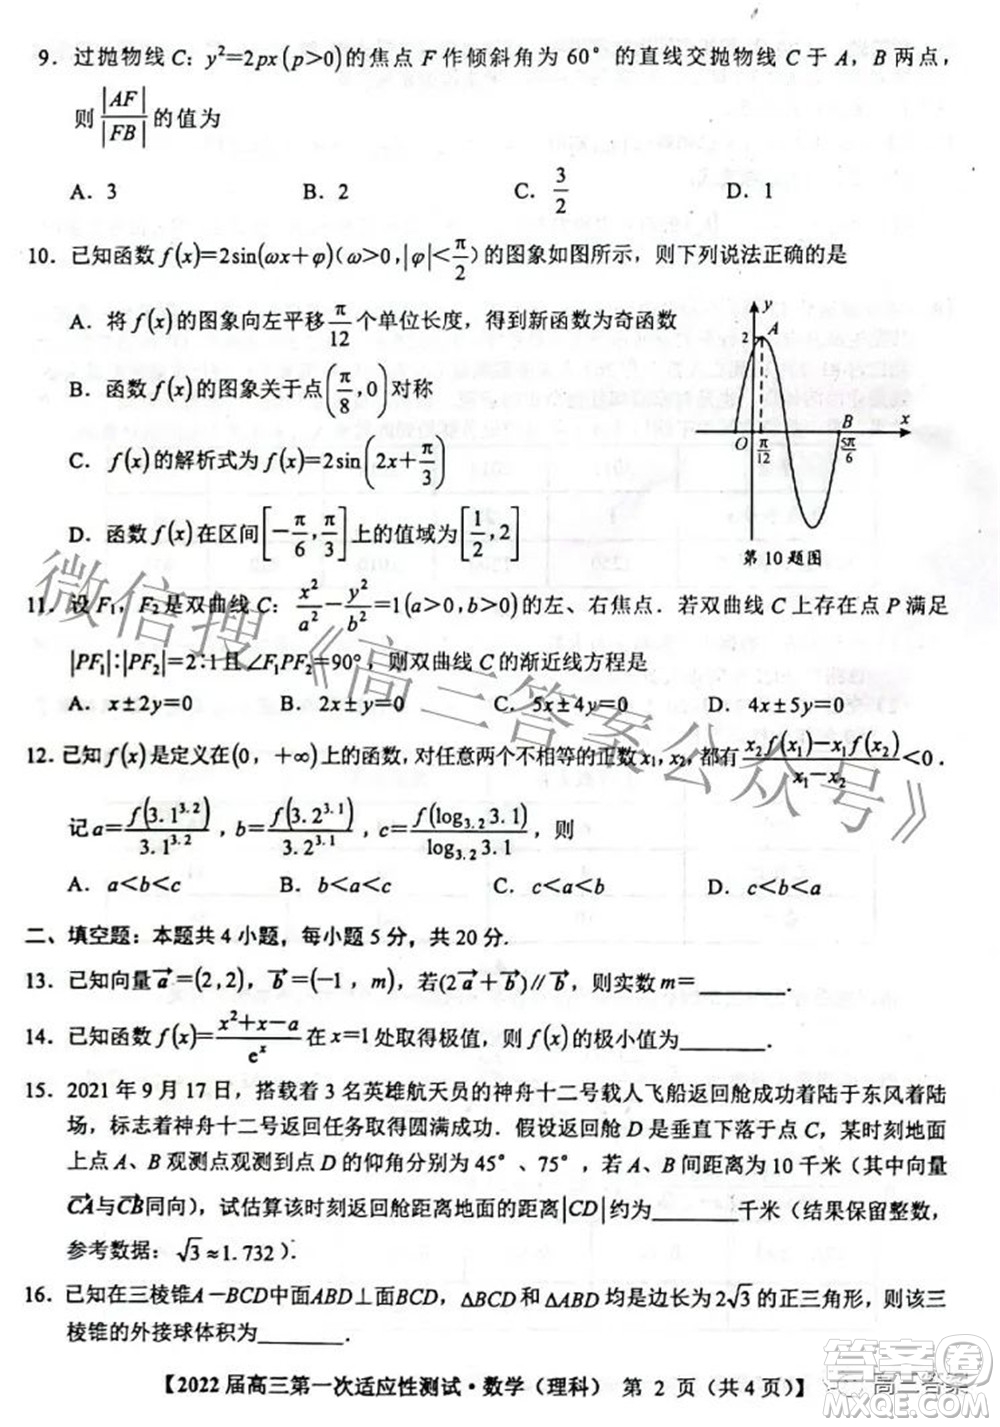 9. 过抛物线 C: y²=2px(p>0)的焦点 F 作倾斜角为 60° 的直线交抛物线 C 于 A, B 两点,
则 |AF|/|FB| 的值为
A. 3 B. 2 C. 3/2 D. 1
10. 已知函数 f(x)=2sin(ωx+φ)(ω>0, |φ|<π/2) 的图象如图所示, 则下列说法正确的是
A. 将 f(x) 的图象向左平移 π/12 个单位长度, 得到新函数为奇函数
B. 函数 f(x) 的图象关于点 (π/8, 0) 对称
C. f(x) 的解析式为 f(x)=2sin(2x+π/3)
D. 函数 f(x) 在区间 [-π/6, π/3] 上的值域为 [1/2, 2]
y
2 A
B
O π/12 5π/6 x
第10题图
11. 设 F₁, F₂ 是双曲线 C: x²/a² - y²/b² =1(a>0, b>0) 的左、右焦点. 若双曲线 C 上存在点 P 满足
|PF₁|∶|PF₂|=2∶1 且 ∠F₁PF₂=90°, 则双曲线 C 的渐近线方程是
A. x±2y=0 B. 2x±y=0 C. 5x±4y=0 D. 4x±5y=0
12. 已知 f(x) 是定义在 (0, +∞) 上的函数, 对任意两个不相等的正数 x₁, x₂, 都有 (x₂f(x₁)-x₁f(x₂))/(x₁-x₂) <0.
记 a= f(3.1^3.2)/3.1^3.2, b= f(3.2^3.1)/3.2^3.1, c= f(log₃.₂3.1)/log₃.₂3.1, 则
A. a<b<c B. b<a<c C. c<a<b D. c<b<a
二、填空题: 本题共 4 小题, 每小题 5 分, 共 20 分.
13. 已知向量 a=(2,2), b=(-1, m), 若(2a+b)∥b, 则实数 m=______.
14. 已知函数 f(x)= (x²+x-a)/eˣ 在 x=1 处取得极值, 则 f(x) 的极小值为______.
15. 2021 年 9 月 17 日, 搭载着 3 名英雄航天员的神舟十二号载人飞船返回舱成功着陆于东风着陆
场, 标志着神舟十二号返回任务取得圆满成功. 假设返回舱 D 是垂直下落于点 C, 某时刻地面
上点 A、B 观测点观测到点 D 的仰角分别为 45°、75°, 若 A、B 间距离为 10 千米(其中向量
CA 与 CB 同向), 试估算该时刻返回舱距离地面的距离 |CD| 约为______千米(结果保留整数,
参考数据: √3≈1.732).
16. 已知在三棱锥A-BCD中面ABD⊥面BCD, △BCD 和 △ABD 均是边长为 2√3 的正三角形, 则该三
棱锥的外接球体积为______.
【2022 届高三第一次适应性测试·数学(理科) 第 2 页(共 4 页)】
微信搜《高三答案公众号》
答案圈
高三答案